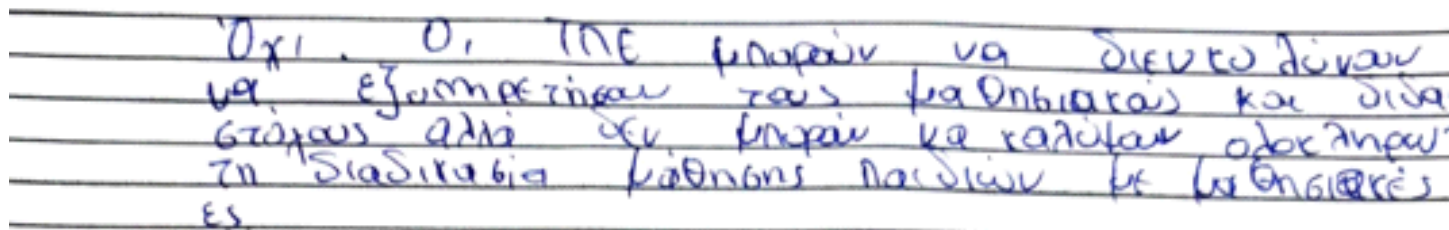 Όχι. Οι ΤΠΕ μπορούν να διευκολύνουν
να εξυπηρετήσουν τους μαθησιακούς και διδα
στόχους αλλά δεν μπορούν να καλύψουν ολοκληρω
τη διαδικασία μάθησης παιδιών με μαθησιακές
ες